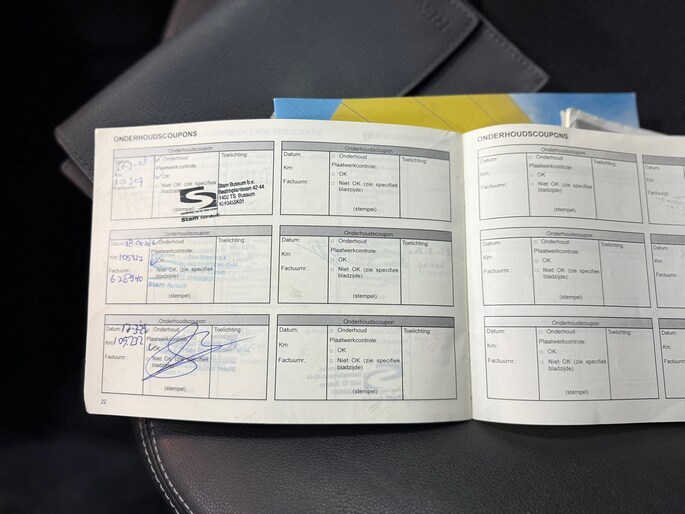 ONDERHOUDSCOUPONS
Onderhoudscoupon
Onderhoud
Toelichting:
Plaatwerkcontrole:
OK
101307
Factuurnr.:
Niet OK (zie specifiek bladzijde)
Stam Bussum b.v.
1402 TS Bussum
Stam
(stempel)
Onderhoudscoupon
Datum:
Onderhoud
Toelichting:
Km:
Plaatwerkcontrole:
OK
Factuurnr.:
Niet OK (zie specifiek
bladzijde)
(stempel)
Onderhoudscoupon
Datum:
Onderhoud
Toelichting:
Km: 105322
Plaatwerkcontrole:
Factuurnr.:
Niet OK (zie specifiek
bladzijde)
628940
(stempel)
Onderhoudscoupon
Datum:
Onderhoud
Toelichting:
Km:
Plaatwerkcontrole:
OK
Factuurnr.:
Niet OK (zie specifiek
bladzijde)
(stempel)
Onderhoudscoupon
Datum:
Onderhoud
Toelichting:
Km: 109232
Plaatwerkcontrole:
Factuurnr.:
Niet OK (zie specifiek
bladzijde)
(stempel)
Onderhoudscoupon
Datum:
Onderhoud
Toelichting:
Km:
Plaatwerkcontrole:
OK
Factuurnr.:
Niet OK (zie specifiek
bladzijde)
(stempel)
22
ONDERHOUDSCOUPONS
Onderhoudscoupon
Datum:
Onderhoud
Toelichting:
Km:
Plaatwerkcontrole:
OK
Factuurnr.:
Niet OK (zie specifiek
bladzijde)
(stempel)
Datum:
Km:
Factuurnr.:
Onderhoudscoupon
Datum:
Onderhoud
Toelichting:
Km:
Plaatwerkcontrole:
OK
Factuurnr.:
Niet OK (zie specifiek
bladzijde)
(stempel)
Datum:
Km:
Factuurnr.:
Onderhoudscoupon
Datum:
Onderhoud
Toelichting:
Km:
Plaatwerkcontrole:
OK
Factuurnr.:
Niet OK (zie specifiek
bladzijde)
(stempel)
Datum:
Km:
Factuurnr.: